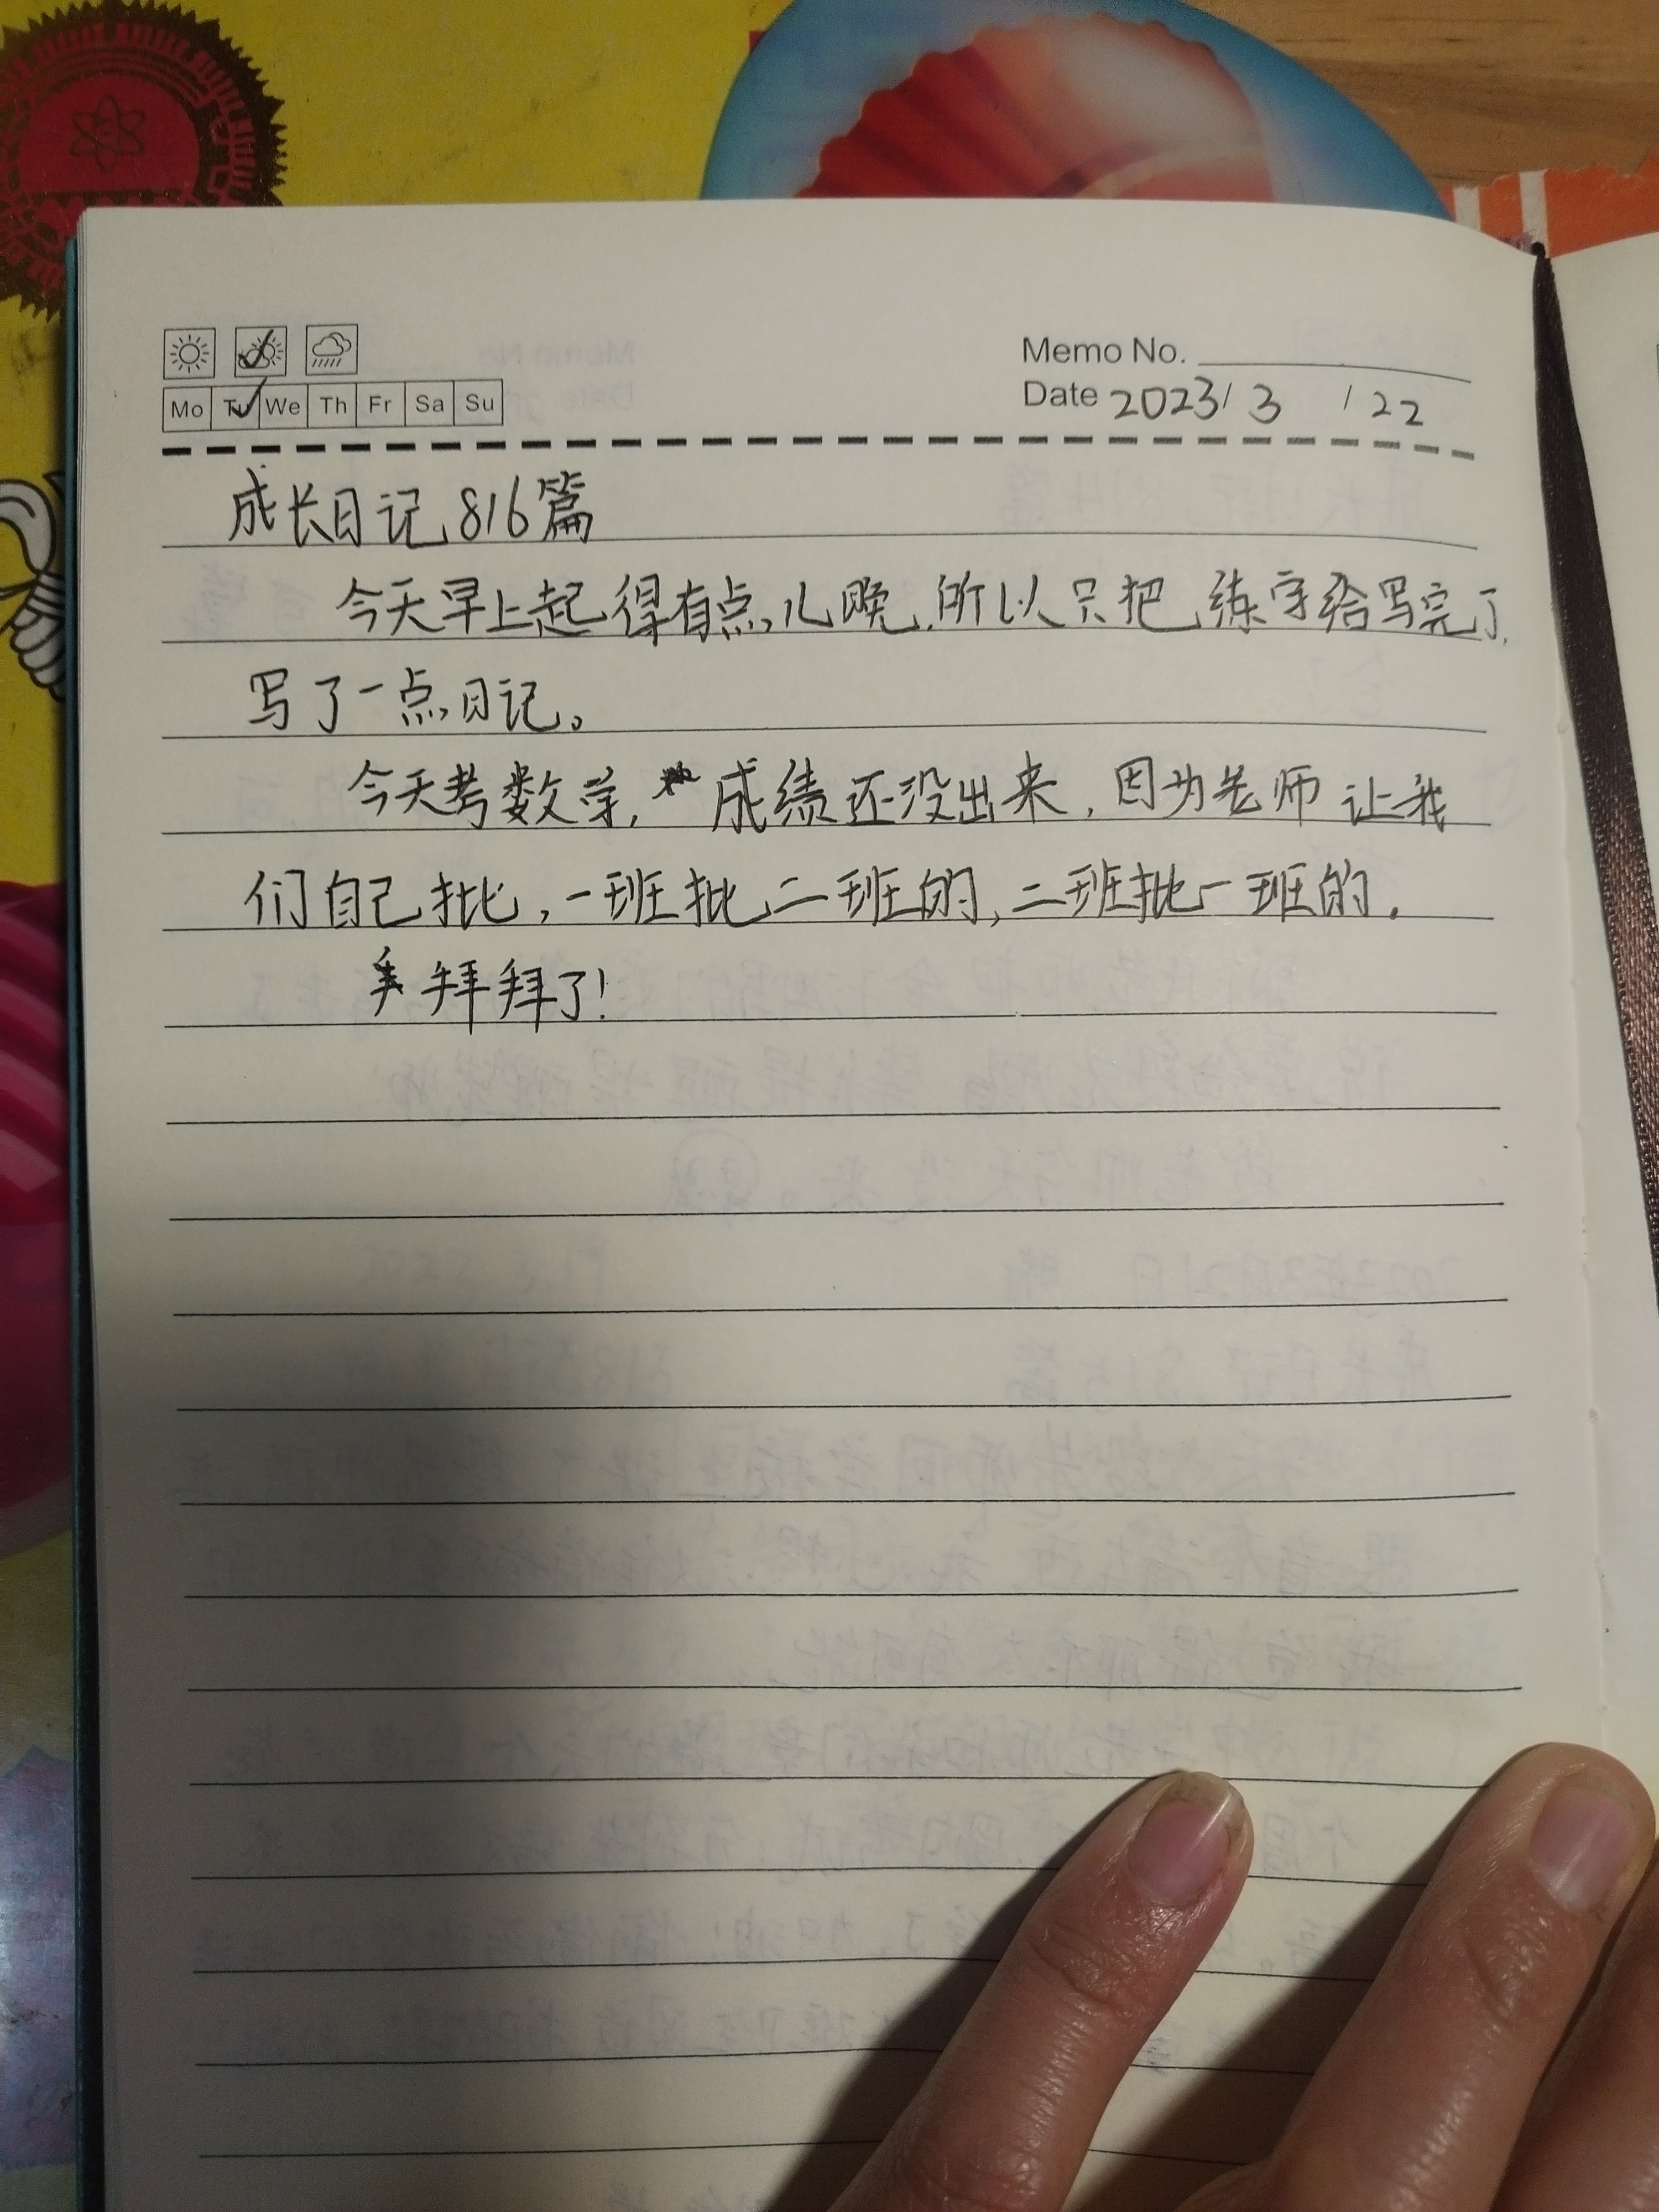 Memo No.
Mo Tu We Th Fr Sa Su
Date 2023/3/22
成长日记816篇
今天早上起得有点儿晚,所以只把练字给写完了,
写了一点日记。
今天考数学,成绩还没出来,因为老师让我
们自己批,一班批二班的,二班批一班的.
拜拜了!